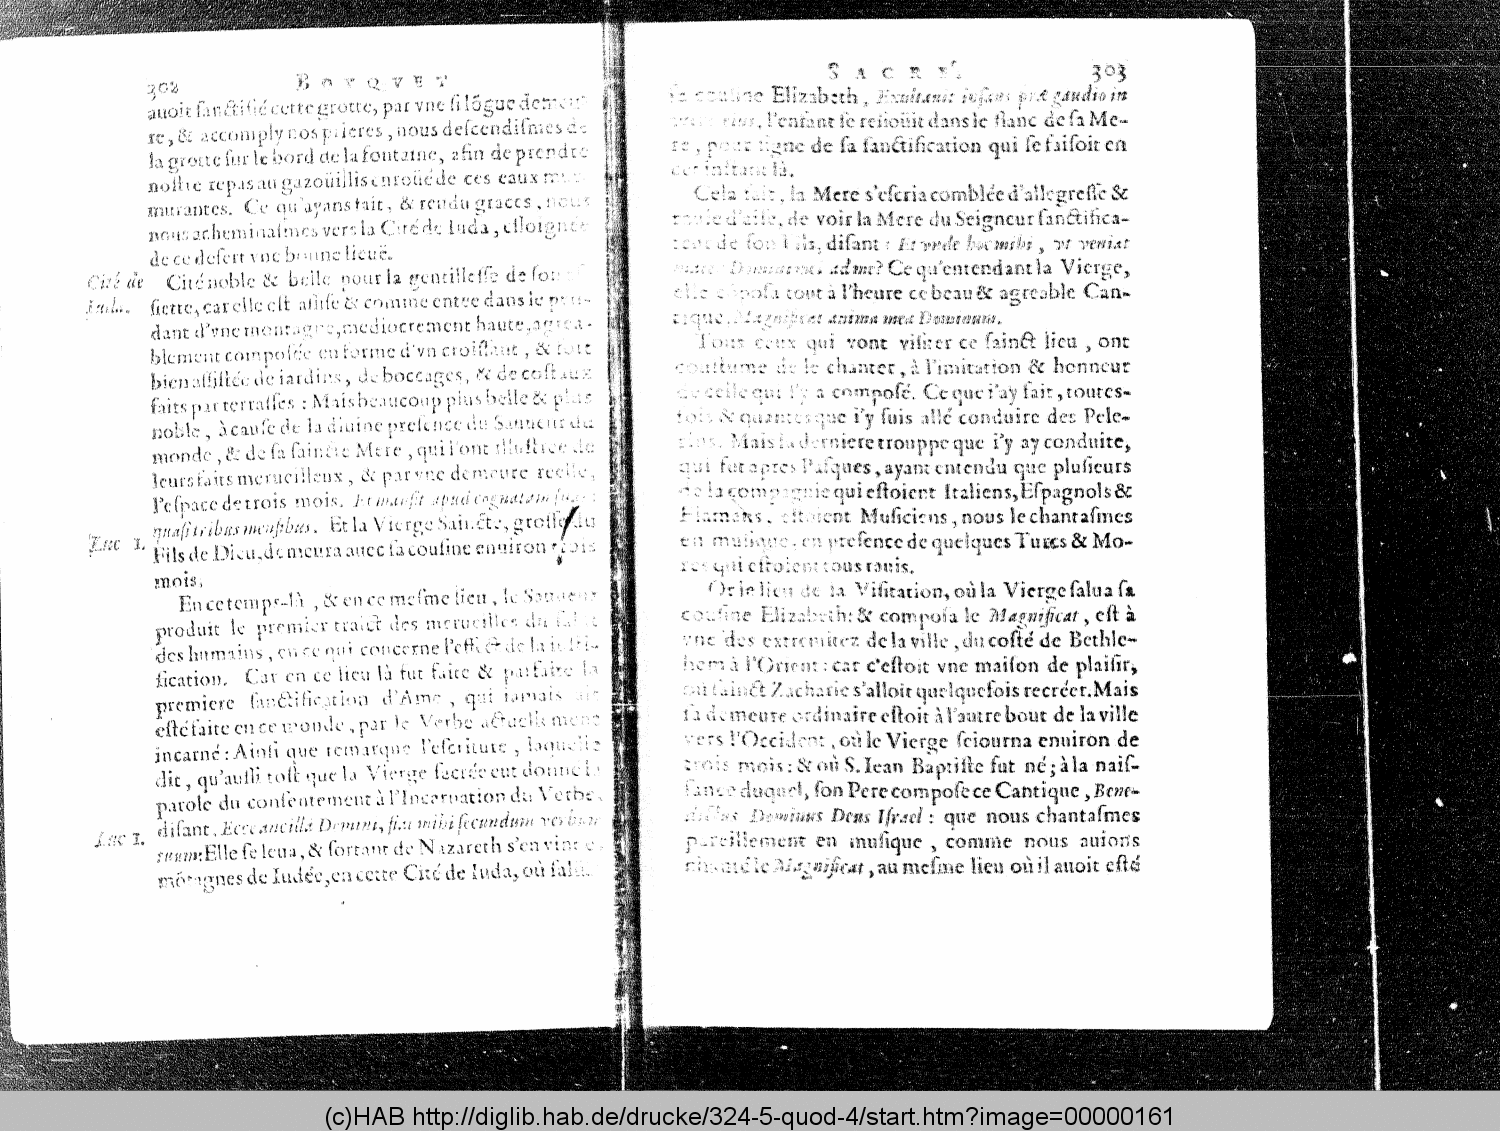 302 BOVQVET
auoit ſanctifié cette grotte, par vne ſi lõgue demeu-
re, & accomply nos prieres, nous deſcendiſmes de
la grotte ſur le bord de la fontaine, afin de prendre
noſtre repas au gazoüillis enroüé de ces eaux
murantes. Ce qu'ayans fait, & rendu graces, nous
nous acheminaſmes vers la Cité de Iuda, eſloignée
de ce deſert vne bonne lieuë.
Cité de Iuda.
Cité noble & belle pour la gentilleſſe de ſon
ſiette, car elle eſt aſſiſe & comme entee dans le pen-
dant d'vne montagne, mediocrement haute, agrea-
blement compoſée en forme d'vn croiſſant, & fort
bien aſſiſtée de iardins, de boccages, & de coſtaux
faits par terraſſes : Mais beaucoup plus belle & plus
noble, à cauſe de la diuine preſence du Sauueur du
monde, & de ſa ſaincte Mere, qui l'ont illuſtrée de
leurs faits merueilleux, & par vne demeure reelle,
l'eſpace de trois mois. Et manſit apud cognatam ſuam
quaſi tribus menſibus. Et la Vierge Saincte, groſſe du
Luc 1.
Fils de Dieu, demeura auec ſa couſine enuiron trois
mois.
En ce temps-là, & en ce meſme lieu, le Sauueur
produit le premier traict des merueilles du ſalut
des humains, en ce qui concerne l'effect de la iuſti-
fication. Car en ce lieu là fut faite & parfaite la
premiere ſanctification d'Ame, qui iamais ait
eſté faite en ce monde, par le Verbe actuellement
incarné : Ainſi que remarque l'eſcriture, laquelle
dit, qu'auſſi toſt que la Vierge ſacrée eut donné la
parole du conſentement à l'Incarnation du Verbe,
diſant, Ecce ancilla Domini, fiat mihi ſecundum verbum
Luc 1.
tuum: Elle ſe leua, & ſortant de Nazareth s'en vint
mõtagnes de Iudée, en cette Cité de Iuda, où ſalüa
SACRÉ. 303
ſa couſine Elizabeth, Exultauit infans præ gaudio in
eius, l'enfant ſe reſioüit dans le flanc de ſa Me-
re, pour ſigne de ſa ſanctification qui ſe faiſoit en
cet inſtant là.
Cela fait, la Mere s'eſcria comblée d'allegreſſe &
rauie d'aiſe, de voir la Mere du Seigneur ſanctifica-
teur de ſon Fils, diſant : Et vnde hoc mihi, vt veniat
mater Domini mei ad me? Ce qu'entendant la Vierge,
elle cõpoſa tout à l'heure ce beau & agreable Can-
tique. Magnificat anima mea Dominum.
Tous ceux qui vont viſiter ce ſainct lieu, ont
couſtume de le chanter, à l'imitation & honneur
de celle qui l'y a compoſé. Ce que i'ay fait, toutes-
fois & quantes que i'y ſuis allé conduire des Pele-
rins. Mais la derniere trouppe que i'y ay conduite,
qui fut apres Paſques, ayant entendu que pluſieurs
de la compagnie qui eſtoient Italiens, Eſpagnols &
Flamans, eſtoient Muſiciens, nous le chantaſmes
en muſique, en preſence de quelques Turcs & Mo-
res qui eſtoient tous rauis.
Or le lieu de la Viſitation, où la Vierge ſalua ſa
couſine Elizabeth: & compoſa le Magnificat, eſt à
vne des extremitez de la ville, du coſté de Bethle-
hem à l'Orient : car c'eſtoit vne maiſon de plaiſir,
où ſainct Zacharie s'alloit quelquefois recréer. Mais
ſa demeure ordinaire eſtoit à l'autre bout de la ville
vers l'Occident, où le Vierge ſeiourna enuiron de
trois mois : & où S. Iean Baptiſte fut né; à la naiſ-
ſance duquel, ſon Pere compoſe ce Cantique, Bene-
dictus Dominus Deus Iſrael : que nous chantaſmes
pareillement en muſique, comme nous auions
chanté le Magnificat, au meſme lieu où il auoit eſté
(c)HAB http://diglib.hab.de/drucke/324-5-quod-4/start.htm?image=00000161